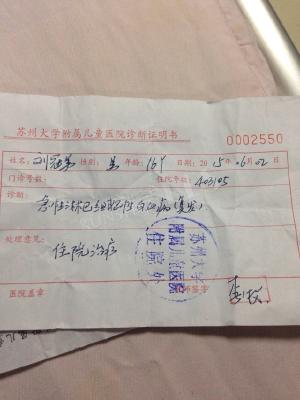 苏州大学附属儿童医院诊断证明书
0002550
姓名: 性别: 男 年龄: 16Y 日期: 2015年06月02日
门诊号数: 住院号数: 403105
诊断:
急性淋巴细胞性白血病(复发)
处理意见:
住院治疗
苏州大学
附属儿童医院
住院处
医院盖章 医师签字